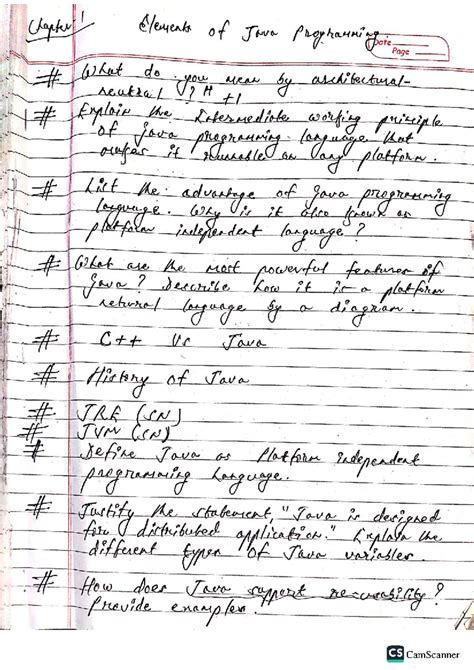 Chapter 1
Elements of Java Programming.
Date
Page
# What do you mean by architectural-
neutral ? H +1
# Explain the Intermediate working principle
of java programming language that
makes it runnable on any platform.
# List the advantage of java programming
language. Why is it also known as
platform independent language ?
# What are the most powerful features of
java ? Describe how it is a platform
netural language by a diagram.
# C++ Vs Java
# History of Java
# JRE (SN)
# JVM (SN)
# Define Java as Platform independent
programming language.
# Justify the statement, "Java is designed
for distributed application." Explain the
different types of Java variables.
# How does Java support re-usability ?
Provide examples.
CS CamScanner